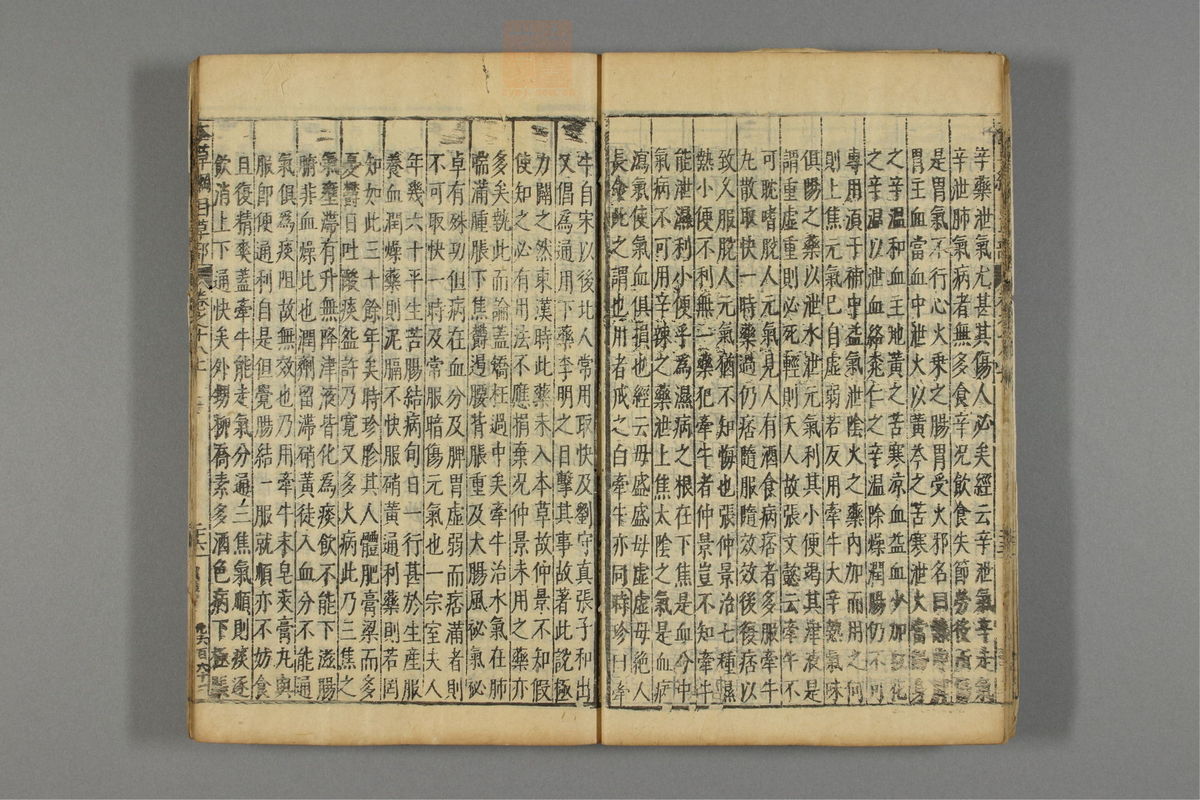 辛藥泄氣尤甚其傷人必矣經云辛泄氣辛走氣
辛泄肺氣病者無多食辛況飲食失節勞役所傷
是胃氣不行心火乘之腸胃受火邪名曰熱
胃主血當血中泄火以黃芩之苦寒泄火當歸身
之辛溫和血生地黃之苦寒凉血益血少加紅花
之辛溫以泄血絡桃仁之辛溫除燥潤腸仍不可
專用須于補中益氣泄陰火之藥內加而用之何
則上焦元氣已自虛弱若反用牽牛大辛熱氣味
俱陽之藥以泄水泄元氣利其小便竭其津液是
謂重虛重則必死輕則夭人故張文懿云牽牛不
可耽嗜脫人元氣見人有酒食病痞者多服牽牛
丸散取快一時藥過仍痞隨服隨效效後復痞以
致久服脫人元氣猶不知悔也張仲景治七種濕
熱小便不利無一藥犯牽牛者仲景豈不知牽牛
能泄濕利小便乎爲濕病之根在下焦是血分中
氣病不可用辛辣之藥泄上焦太陰之氣是血病
瀉氣使氣血俱損也經云毋盛盛毋虛虛毋絕人
長命此之謂也用者戒之白牽牛亦同時珍曰牽
牛自宋以後北人常用取快及劉守真張子和出
又倡爲通用下藥李明之目擊其事故著此說極
力闢之然東漢時此藥未入本草故仲景不知假
使知之必有用法不應捐棄況仲景未用之藥亦
多矣執此而論蓋矯枉過中矣牽牛治水氣在肺
喘滿腫脹下焦鬱遏腰背脹重及大腸風祕氣祕
卓有殊功但病在血分及脾胃虛弱而痞滿者則
不可取快一時及常服暗傷元氣也一宗室夫人
年幾六十平生苦腸結病旬日一行甚於生產服
養血潤燥藥則泥膈不快服硝黃通利藥則若罔
知如此三十餘年矣時珍診其人體肥膏粱而多
憂鬱日吐酸痰盌許乃寬又多火病此乃三焦之
氣壅滯有升無降津液皆化爲痰飲不能下滋腸
腑非血燥比也潤劑留滯硝黃徒入血分不能通
氣俱爲痰阻故無效也乃用牽牛末皂莢膏丸與
服卽便通利自是但覺腸結一服就順亦不妨食
且復精爽蓋牽牛能走氣分通三焦氣順則痰逐
飲消上下通快矣外甥柳喬素多酒色病下極脹
本草綱目草部 卷之十八上